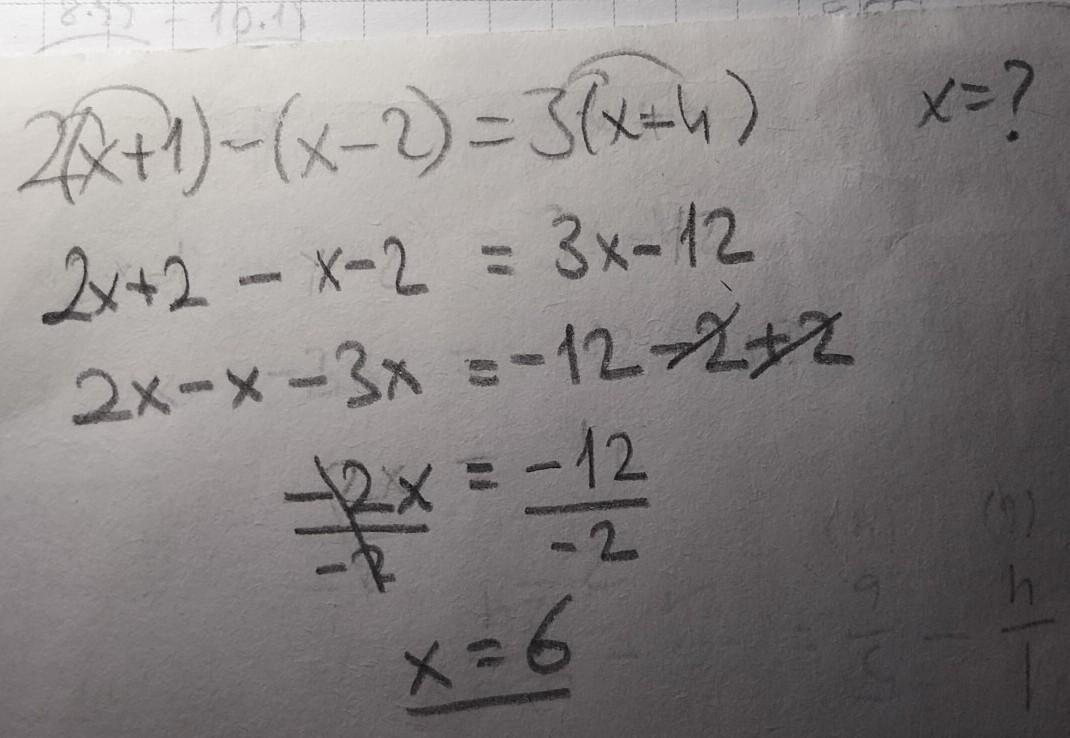 2(x+1)-(x-2)=3(x-4) x=?
2x+2 - x-2 = 3x-12
2x-x-3x =-12-2+2
-2x = -12
-2 -2
x=6